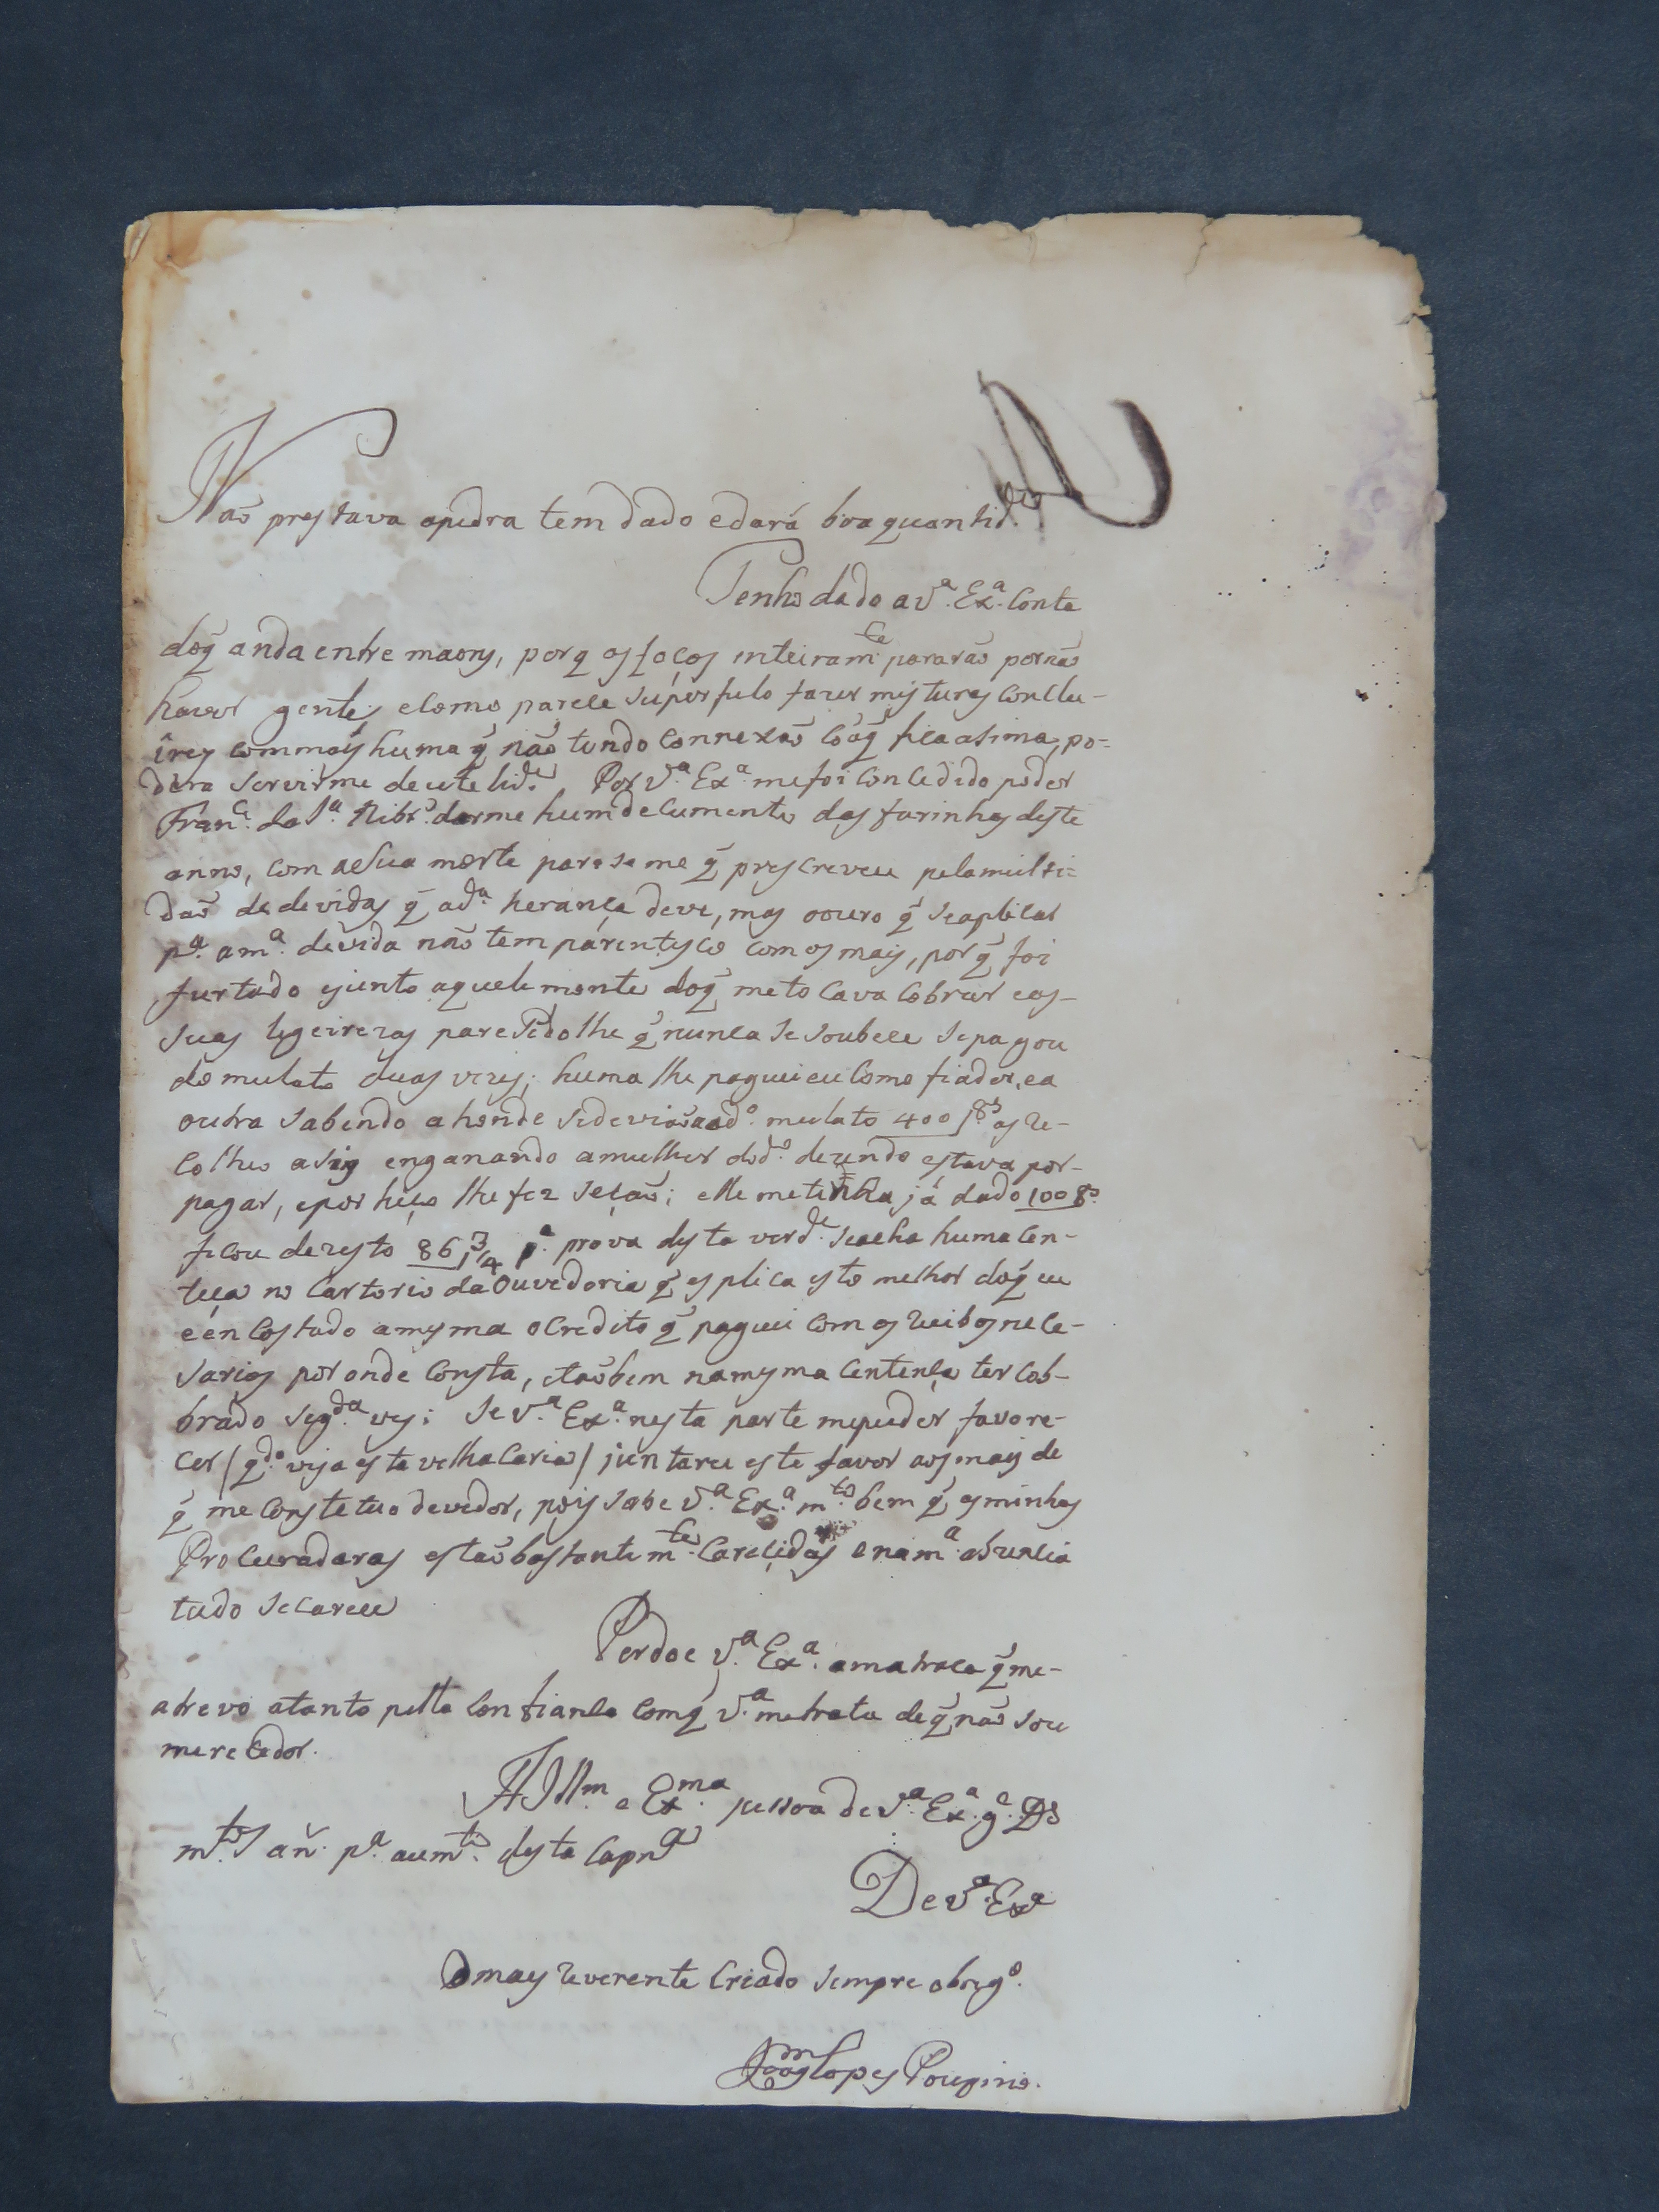 Naõ prestava apedra tem dado edará boa quantid.e
Tenho dado a V.a Ex.a conta
doq̃ anda entre maons, porq os socos inteiram.te pararaõ por naõ
haver gente; ecomo parece superfulo fazer misturas conclu-
irey commais huma q̃ naõ tendo connexaõ cõ oq̃ fica asima, po-
dera servirme de utelid.e Por V.a Ex.a me foi concedido poder
Fran.co da S.a Ribr.o darme hum documento das farinhas deste
anno, com a sua morte parese me q̃ prescreveu pela multi-
daõ de devidas q̃ a d.a herança deve, mas oouro q̃ se aplicar
p.a a m.a devida naõ tem parentesco com os mais, por q̃ foi
furtado ejunto aquele monte doq̃ me tocava cobrar eas
suas ligeirezas paresedolhe q̃ nunca se soubece se pagou
do mulato duas vezes; huma lhe paguei eu como fiador, ea
outra sabendo ahonde sedeviaõ aod.o mulato 400/8.as os re-
colheo asig enganando amulher dod.o dezendo estava por-
pagar, epor hiço lhe fez seçaõ; elle me tinha já dado 100 8.as
ficou de resto 86/3/4 p.a prova desta verd.e seacha huma cen-
teça no Cartorio da Ouvedoria q̃ esplica isto melhor doq̃ eu
eencostado amesma ocredito q̃ paguei com os recibos nece-
sarios por onde consta, etaõbem namesma centença ter cob-
brado seg.da ves; Se V.a Ex.a nesta parte mepuder favore-
cer / q.do veja esta velhacaria / juntarei este favor aos mais de
q̃ me constetuo devedor, pois sabe V.a Ex.a m.to bem q̃ asminhas
Procuradaras estaõ bastantem.te carecidas e na m.a absencia
tudo secarece
Perdoe V.a Ex.a amatraca q̃ me-
atrevo atanto pella confiança comq̃ V.a metrata deq̃ naõ sou
merecedor.
A Ill.m e Ex.ma pessoa de V.a Ex.a g.e D.s
m.tos añ. p.a aum.to desta Capn.a
De V.a Ex.a
O mais reverente criado sempre obrig.o
Lopes